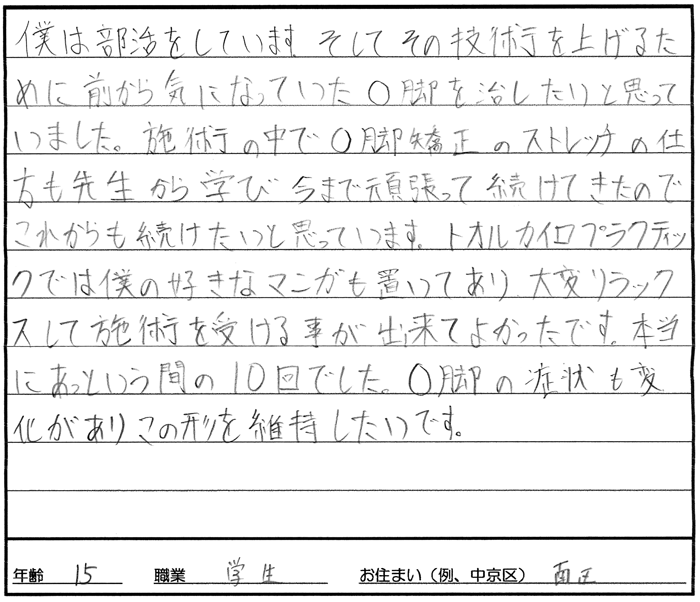 僕は部活をしています。そしてその技術を上げるた
めに前から気になっていたO脚を治したいと思って
いました。施術の中でO脚矯正のストレッチの仕
方も先生から学び今まで頑張って続けてきたので
これからも続けたいと思っています。トオルカイロプラクティッ
クでは僕の好きなマンガも置いてあり大変リラック
スして施術を受ける事が出来てよかったです。本当
にあっという間の10回でした。O脚の症状も変
化がありこの形を維持したいです。
年齢 15 職業 学生 お住まい(例、中京区) 南区